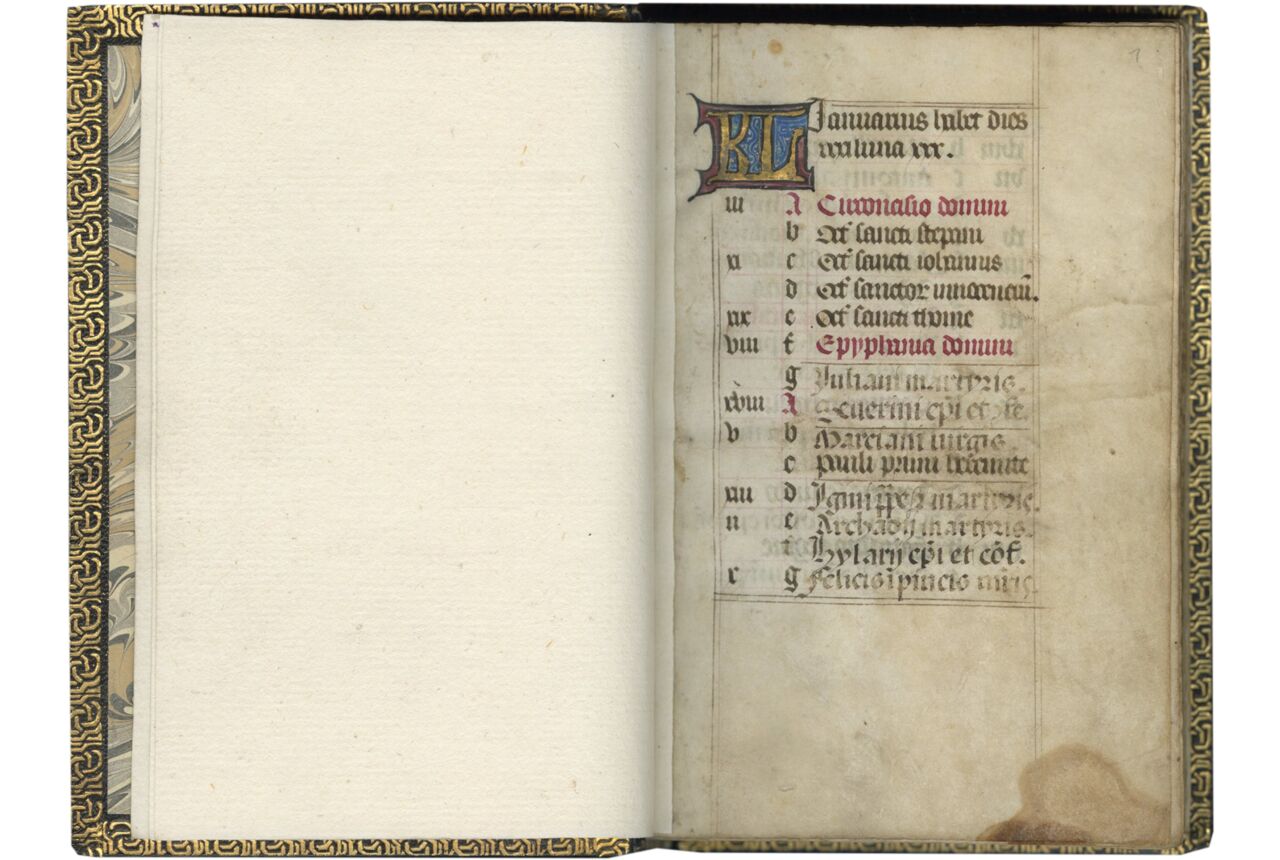 1
KL Januarius habet dies
xxxi luna xxx.
iii A Circoncisio domini
b Oct' sancti stepani
xi c Oct' sancti iohannis
d Oct' sanctor innocenciū.
xix e Oct' sancti thome
viii f Epyphania domini
g Juliani martyris.
xvi A Severini ep̄i et
v b Marciani virgis
c Pauli primi heremite
xiii d martyris.
ii e Archadij martyris.
f Hylarij ep̄i et cōf.
x g Felicis ī pincis